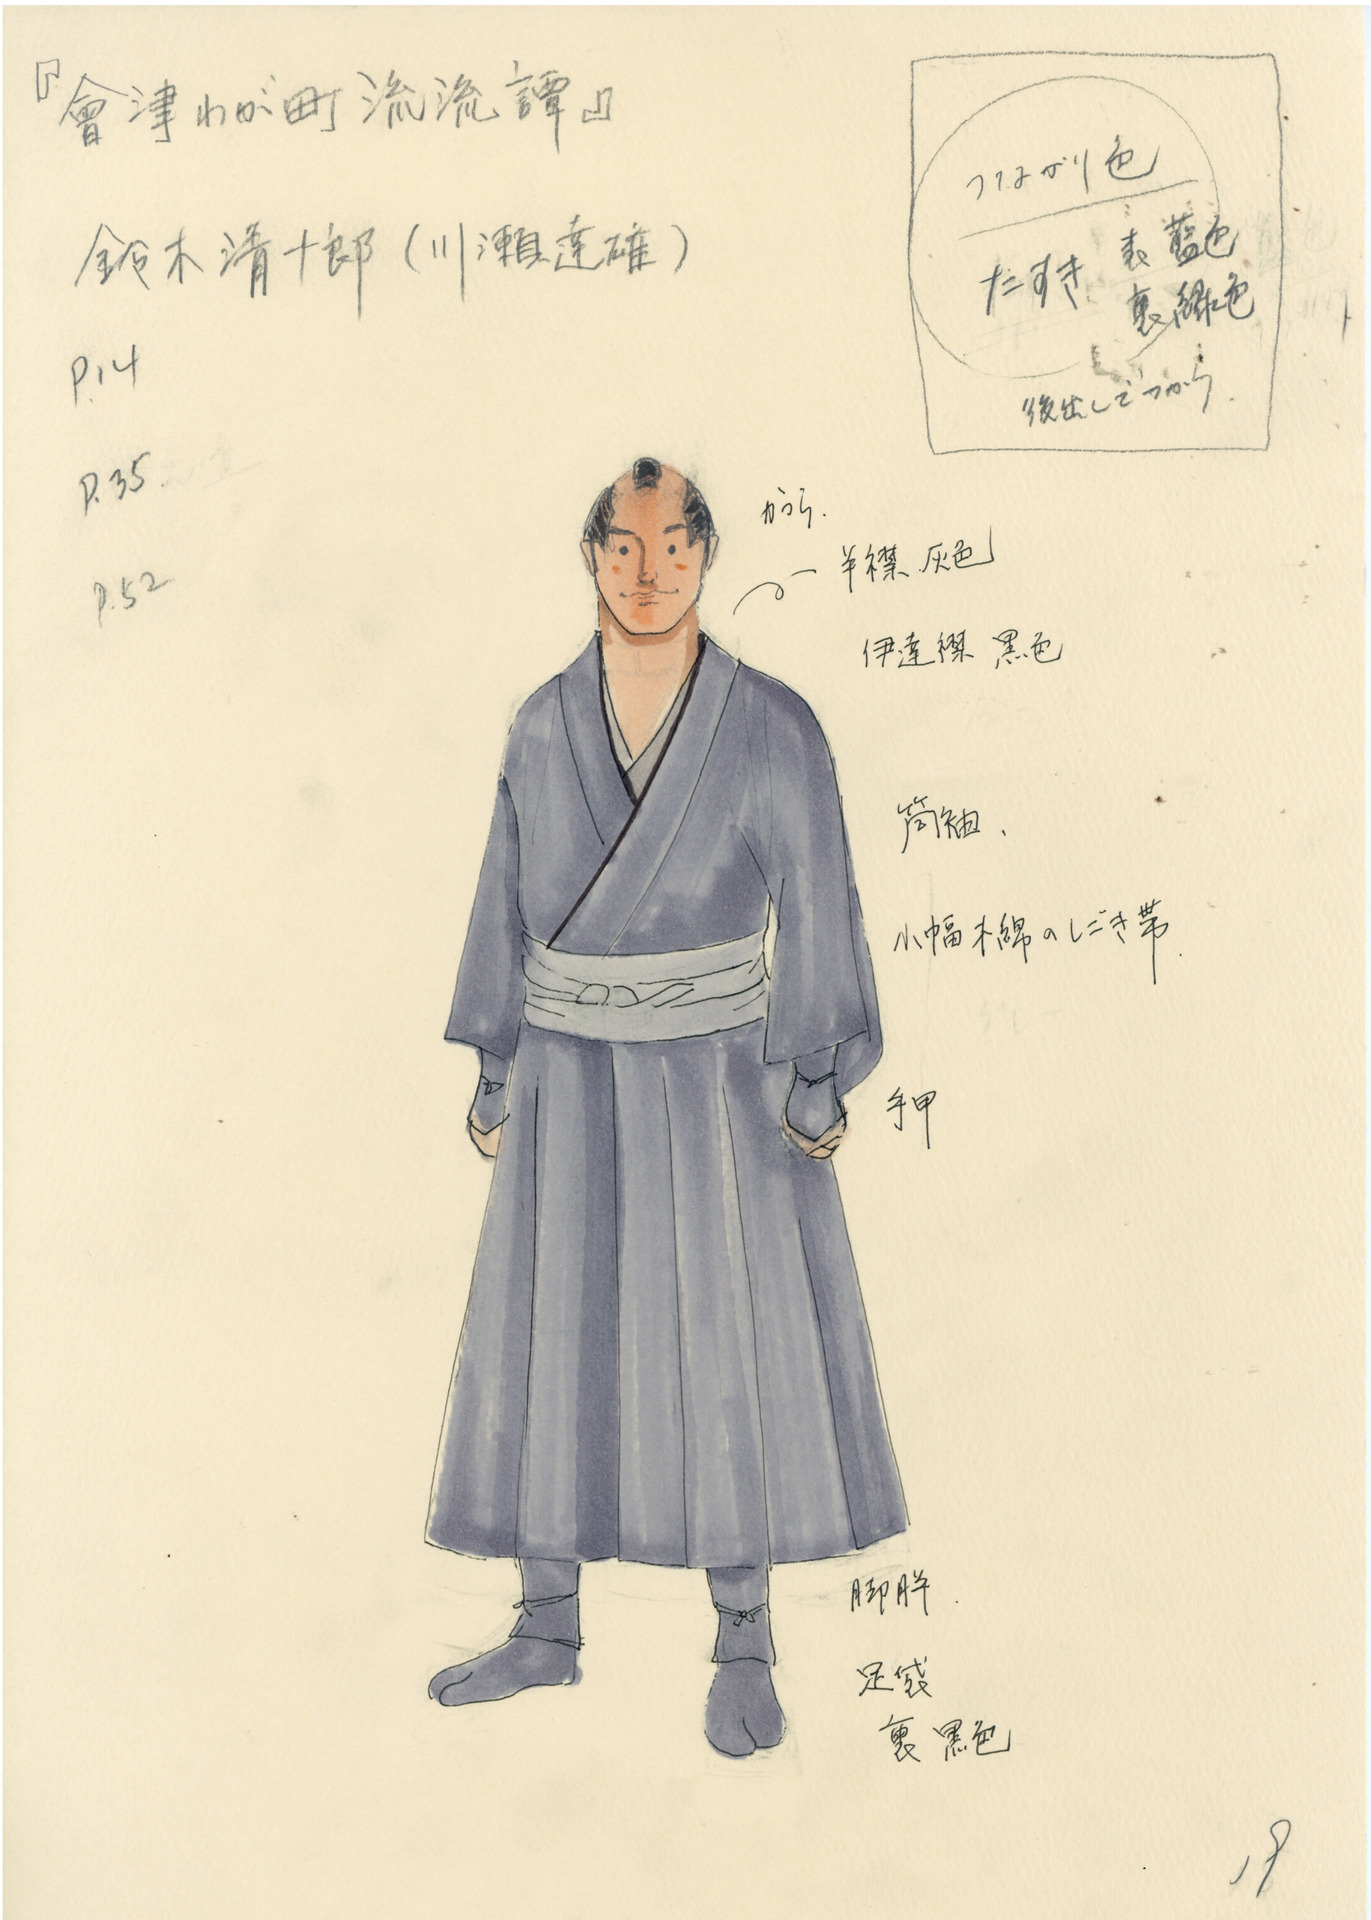 『會津わが町流流譚』
鈴木清十郎(川瀬達雄)
P.14
P.35
P.52
つながり色
たすき 表 藍色
裏 緑色
後出しでつかう.
かつら.
半襟 灰色
伊達襟 黒色
筒袖、
小幅木綿のしごき帯.
手甲
脚胖.
足袋
裏 黒色
19